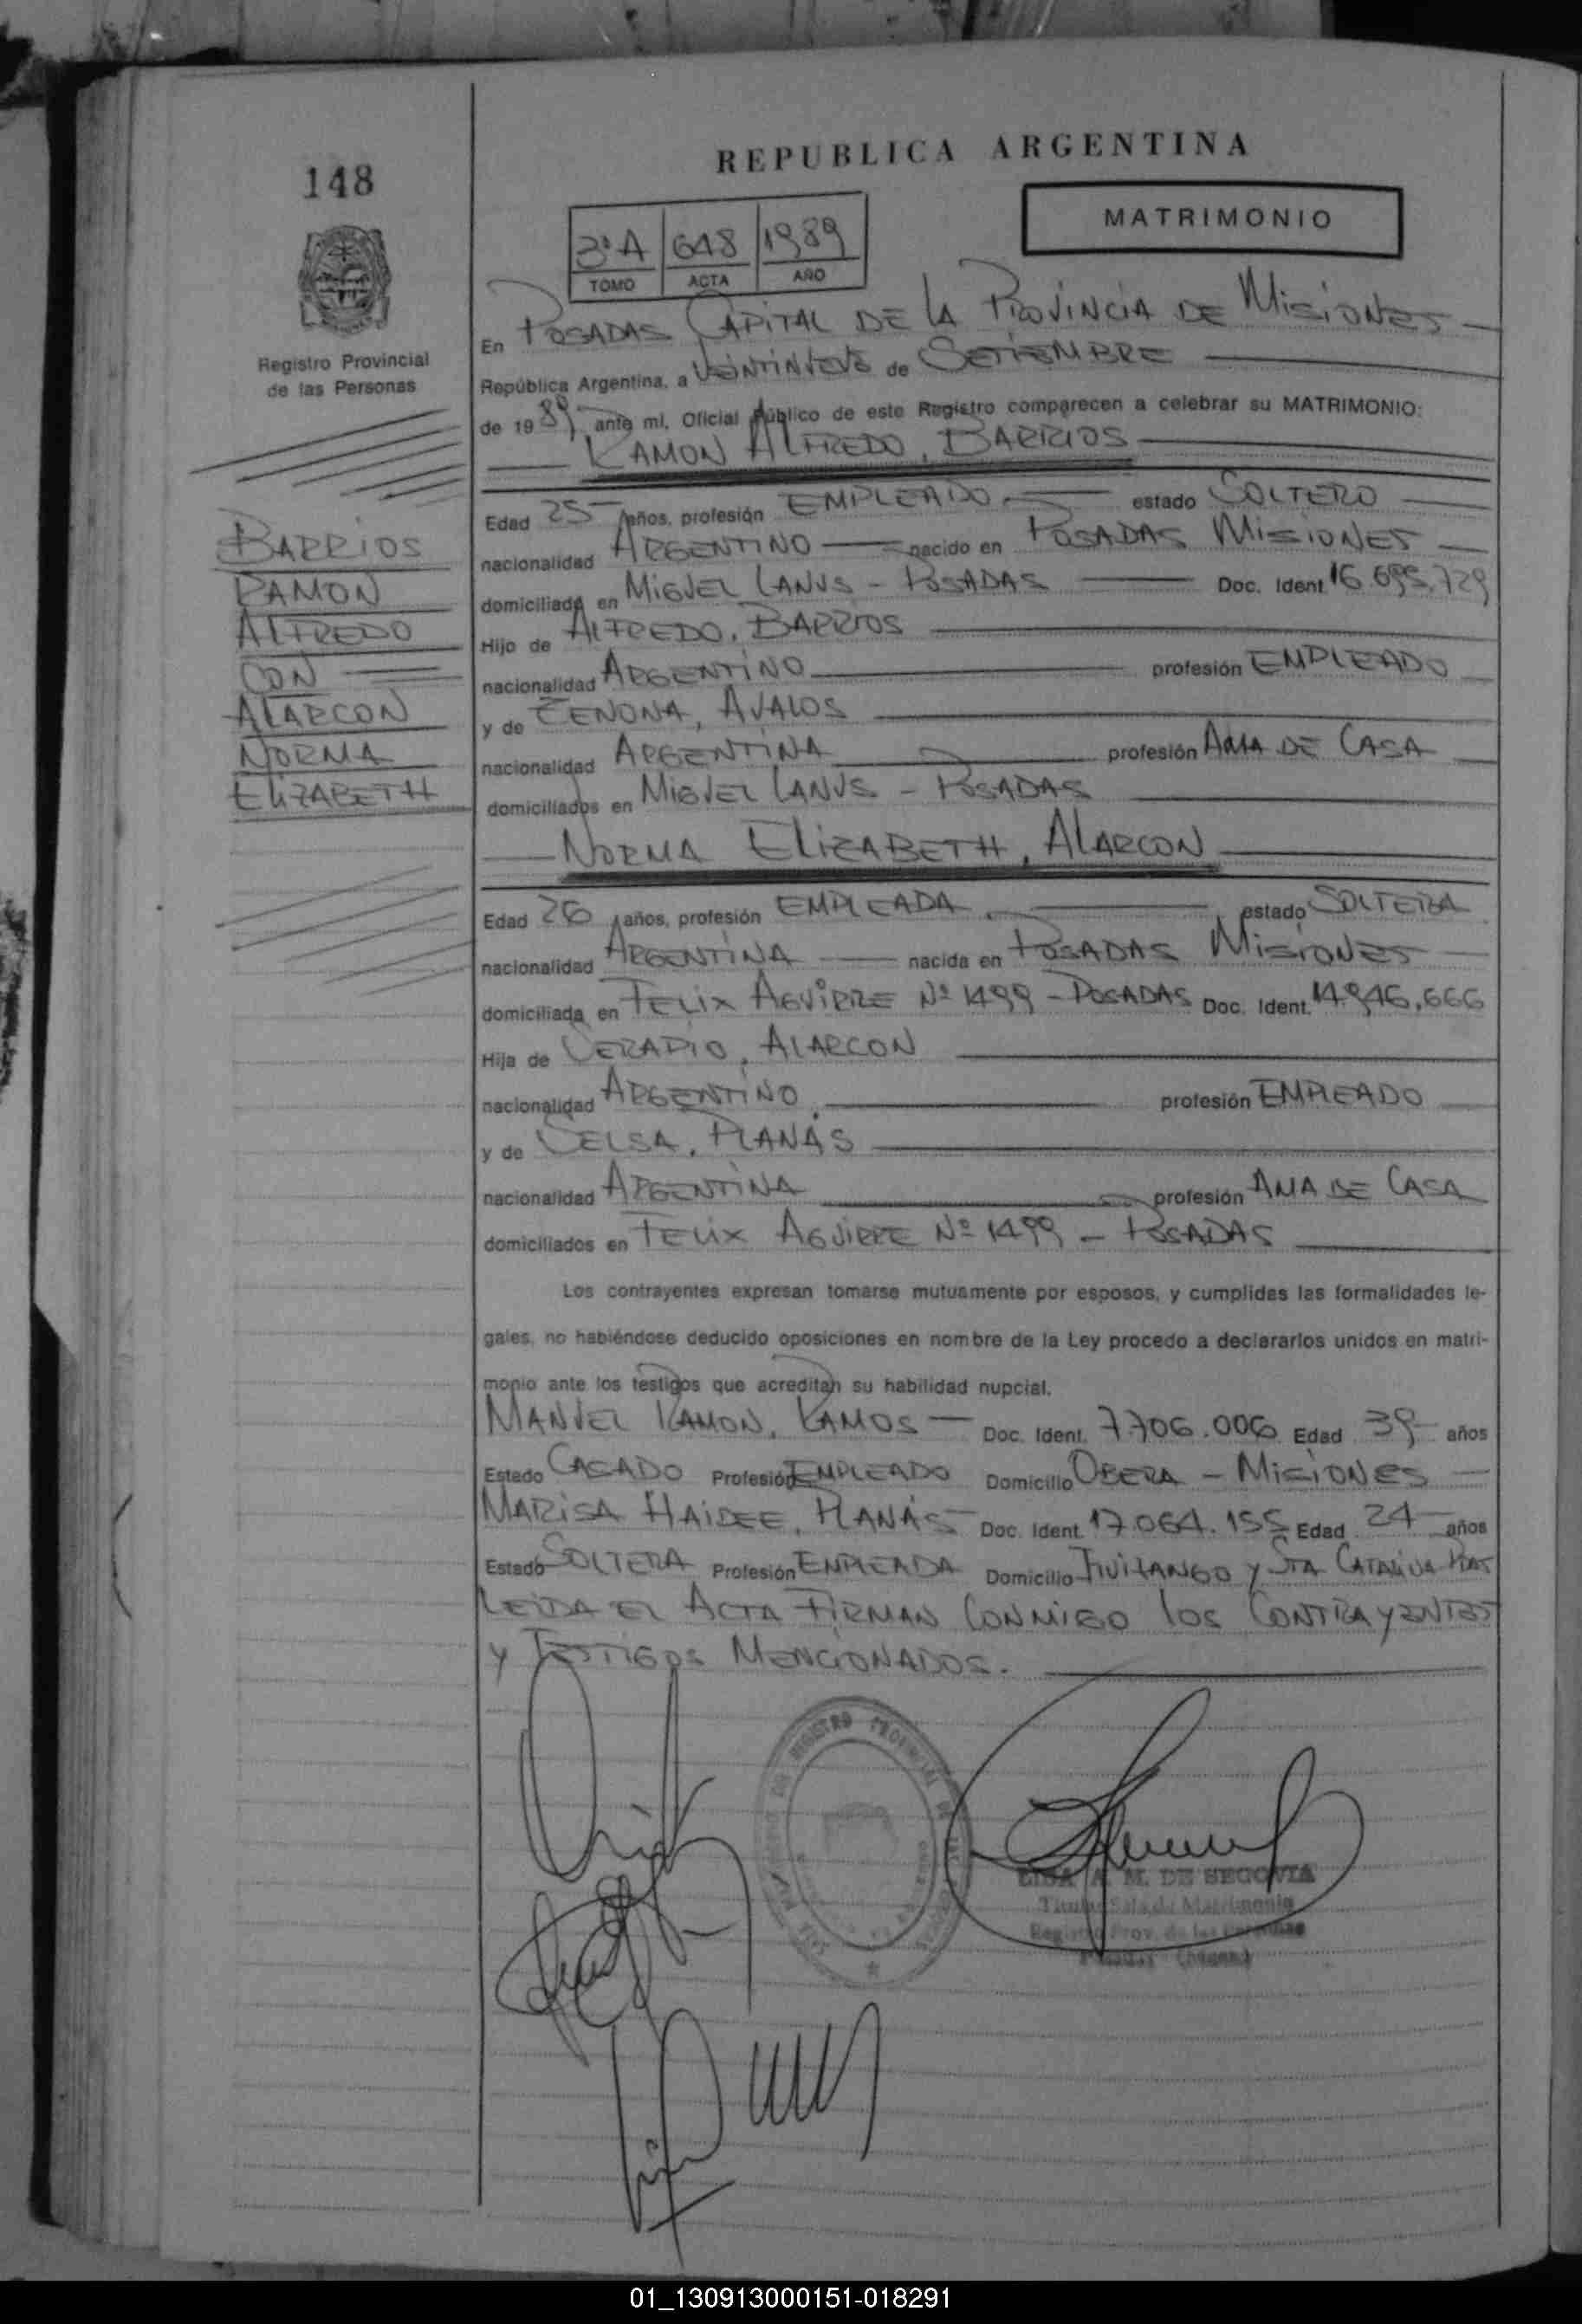 148
REPUBLICA ARGENTINA
MATRIMONIO
3ºA 648 1989
TOMO ACTA AÑO
Registro Provincial
de las Personas
En POSADAS CAPITAL DE LA PROVINCIA DE MISIONES
República Argentina, a VEINTINUEVE de SETIEMBRE
de 1989, ante mi, Oficial Público de este Registro comparecen a celebrar su MATRIMONIO:
RAMON ALFREDO, BARRIOS
BARRIOS
RAMON
ALFREDO
CON
ALARCON
NORMA
ELIZABETH
Edad 25 años, profesión EMPLEADO. estado SOLTERO
nacionalidad ARGENTINO nacido en POSADAS MISIONES
domiciliado en MIGUEL LANUS - POSADAS Doc. Ident. 16.695.729
Hijo de ALFREDO, BARRIOS
nacionalidad ARGENTINO profesión EMPLEADO
y de ZENONA, AVALOS
nacionalidad ARGENTINA profesión AMA DE CASA
domiciliados en MIGUEL LANUS - POSADAS
NORMA ELIZABETH, ALARCON
Edad 26 años, profesión EMPLEADA. estado SOLTERA
nacionalidad ARGENTINA nacida en POSADAS MISIONES
domiciliada en FELIX AGUIRRE Nº 1499 - POSADAS Doc. Ident. 14.946.666
Hija de SERAPIO, ALARCON
nacionalidad ARGENTINO. profesión EMPLEADO
y de CELSA, PLANAS
nacionalidad ARGENTINA profesión AMA DE CASA
domiciliados en FELIX AGUIRRE Nº 1499 - POSADAS
Los contrayentes expresan tomarse mutuamente por esposos, y cumplidas las formalidades le-
gales, no habiéndose deducido oposiciones en nombre de la Ley procedo a declararlos unidos en matri-
monio ante los testigos que acreditan su habilidad nupcial.
MANUEL RAMON, RAMOS - Doc. Ident. 7.706.006 Edad 39 años
Estado CASADO Profesión EMPLEADO Domicilio OBERA - MISIONES
MARISA HAIDEE, PLANAS Doc. Ident. 17.064.155 Edad 24 años
Estado SOLTERA Profesión EMPLEADA Domicilio Y STA CATALINA PDAS
LEIDA EL ACTA FIRMAN CONMIGO LOS CONTRAYENTES
Y TESTIGOS MENCIONADOS.
REGISTRO PROVINCIAL DE LAS PERSONAS
A. M. DE SEGOVIA
Titular Sala de Matrimonio
Registro Prov. de las Personas
01_130913000151-018291